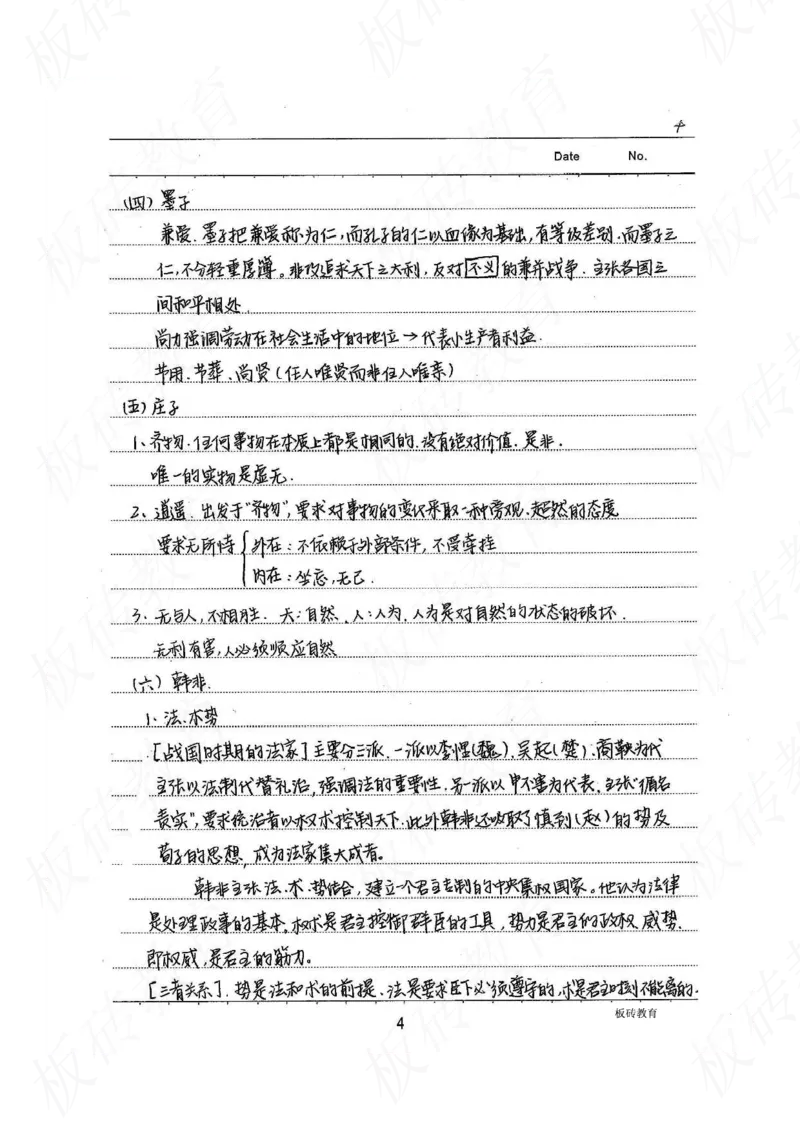 Date No.
(四) 墨子
兼爱．墨子把兼爱称为仁，而孔子的仁以血缘为基础，有等级差别．而墨子之
仁，不分轻重厚薄。非攻追求天下之大利，反对不义的兼并战争．主张各国之
间和平相处．
尚力强调劳动在社会生活中的地位→代表小生产者利益．
节用．节葬．尚贤（任人唯贤而非任人唯亲）
(五) 庄子
1、齐物．任何事物在本质上都是相同的．没有绝对价值．是非．
唯一的实物是虚无．
2、逍遥．出发于“齐物”，要求对事物的变化采取一种旁观．超然的态度
要求无所恃 { 外在：不依赖于外部条件，不受牵挂
内在：坐忘，无己．
3、天与人，不相胜．天：自然．人：人为．人为是对自然的状态的破坏．
无利有害，人必须顺应自然
(六) 韩非．
1、法．术势
[战国时期的法家] 主要分三派．一派以李悝(魏)．吴起(楚)．商鞅为代
主张以法制代替礼治，强调法的重要性．另一派以申不害为代表．主张“循名
责实”，要求统治者以权术控制天下．此外韩非还吸取了慎到(赵)的势及
荀子的思想，成为法家集大成者。
韩非主张法．术．势结合，建立一个君主专制的中央集权国家。他认为法律
是处理政事的基本．权术是君主控御群臣的工具，势力是君主们政权．威势．
即权威，是君主的筋力。
[三者关系]．势是法和术的前提．法是要求臣下必须遵守的，术是君主时刻不能离的．
板砖教育
4